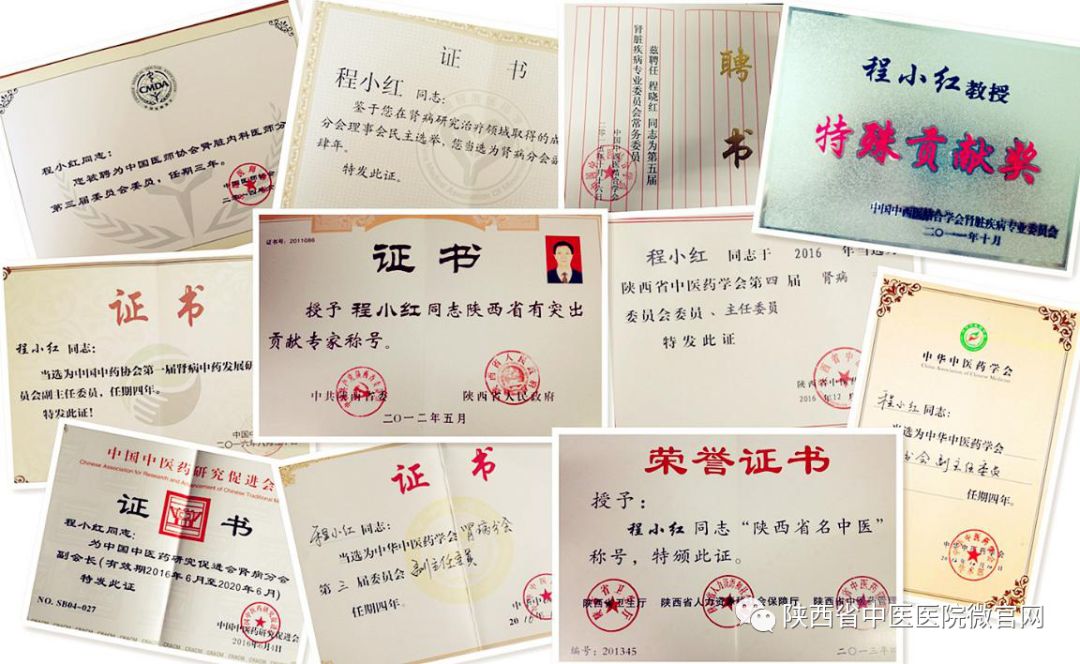 CMDA
程小红同志：
您被聘为中国医师协会肾脏内科医师分
第三届委员会委员，任期三年。
中国医师协会
证 书
程小红 同志：
鉴于您在肾病研究治疗领域取得的成
分会理事会民主选举，您当选为肾病分会副
肆年。
特发此证。
聘书
兹聘任 程晓红 同志为第五届
肾脏疾病专业委员会常务委员
中国中西医结合学会
程小红教授
特殊贡献奖
中国中西医结合学会肾脏疾病专业委员会
二〇一一年十月
证 书
程小红 同志：
当选为中国中药协会第一届肾病中药发展研
员会副主任委员，任期四年。
特发此证！
证书号：2011086
证 书
授予 程小红 同志陕西省有突出
贡献专家称号。
中共陕西省委 陕西省人民政府
二〇一二年五月
程小红 同志于 2016 年当选
陕西省中医药学会第四届 肾病
委员会委员、主任委员
特发此证
中华中医药学会
China Association of Chinese Medicine
程小红同志：
当选为中华中医药学会
分会副主任委员
任期四年。
中国中医药研究促进会
Chinese Association for Research and Advancement of Chinese Traditional M
证 书
程小红同志：
为中国中医药研究促进会肾病分会
副会长（有效期2016年6月至2020年6月）
特发此证
NO. SB04-027
中国中医药研究促进会
2016年6月4日
证 书
程小红同志：
当选为中华中医药学会肾病分会
第三届委员会副主任委员
任期四年。
荣誉证书
授予：
程小红 同志“陕西省名中医”
称号，特颁此证。
陕西省卫生厅 陕西省人力资源社会保障厅 陕西省中医药管理
编号：201345
二〇一三年
陕西省中医医院微官网